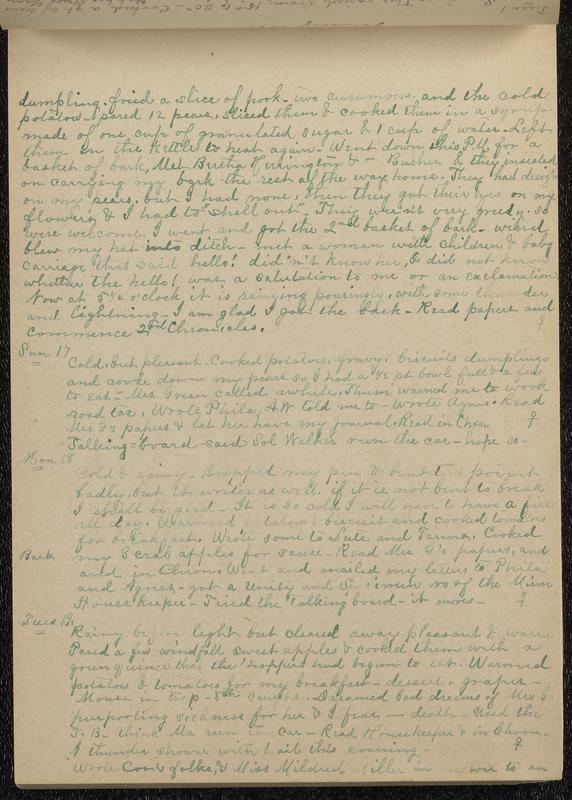 dumpling. fried a slice of pork - two cucumbers. and the cold
potatoes - pared 12 pears, sliced them & cooked them in a syrup
made of one cup of granulated sugar & 1 cup of water - Left
them in the kettle to heat again - Went down this P.M. for a
basket of bark, Met Bertha & - Bucher & they insisted
on carrying my bark the rest of the way home. They had designs
on my pears. but I had none, then they got their eyes on my
flowers & I had to "shell out" - They wer'nt very greedy. so
were welcome. I went and got the 2nd basket of bark - wind
blew my hat into ditch - met a woman with children & baby
carriage that said hello! did'n't know her, & did not know
whether the hello! was a salutation to me or an exclamation
Now at 5½ o'clock it is raining pouringly, with some thunder
and lightning - I am glad I got the bark - Read papers and
commence 2nd Chronicles. ♀
Sun 17
Cold, but pleasant - Cooked potatoes, gravy. biscuits dumplings
and cooke down my pears so I had a ½ pt bowl full & a few
to eat - Mrs Green called awhile, Thum warned me to work
road tax. Wrote Phila, AW told me to - wrote Agnes. Read
Mrs G's papers & let her have my journal, Read in Chro.. ♀
Talking = board said Sol Walker run the car - hope so -
Mon. 18
Cold & rainy - Dropped my pen & bent the point
badly, but it writes as well. if it is not bent to break
I shall be glad - It is so cold I will have to have a fire
all day. Warmed potatoes & biscuit and cooked tomatoes
for breakfast. Wrote some to Lute and Parma. Cooked
Bark my 3 crab apples for sauce - Read Mrs G's papers, and
and in Chron. Went and mailed my letters to Phila
and Agnes - got a Unity and Specimen no of the Minn
Housekeeper - Tried the talking board - it moves - ♀
Tues 19
Rainy before light but cleared away pleasant & warm
Pared a few windfall sweet apples & cooked them with a
green quince that the 'hoppers had began to eat. Warmed
potatoes & tomatoes for my breakfast - dessert - grapes -
Mouse in trap - 8th caught. Dreamed bad dreams of Mrs G
purporting sickness for her & I fear - death - Used the
T. B. think Ma run the car - Read Housekeeper & in Chron.
A thunder shower with hail this evening - ♀
Wrote folks, & Miss Mildred Miller in answer to an